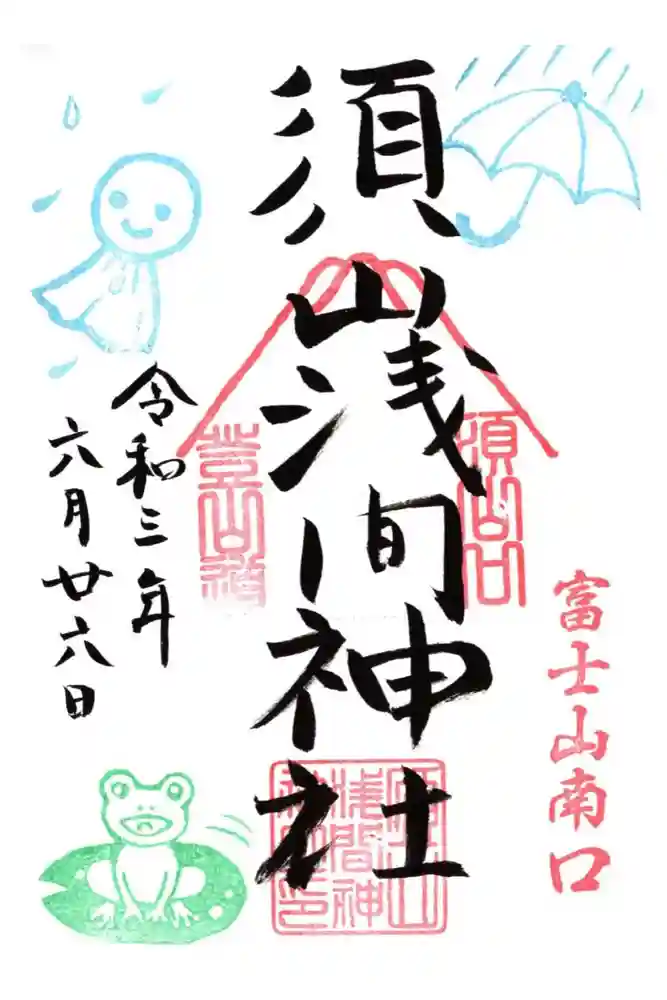 富士山南口
須山浅間神社
須山口
登山道
令和三年
六月廿六日